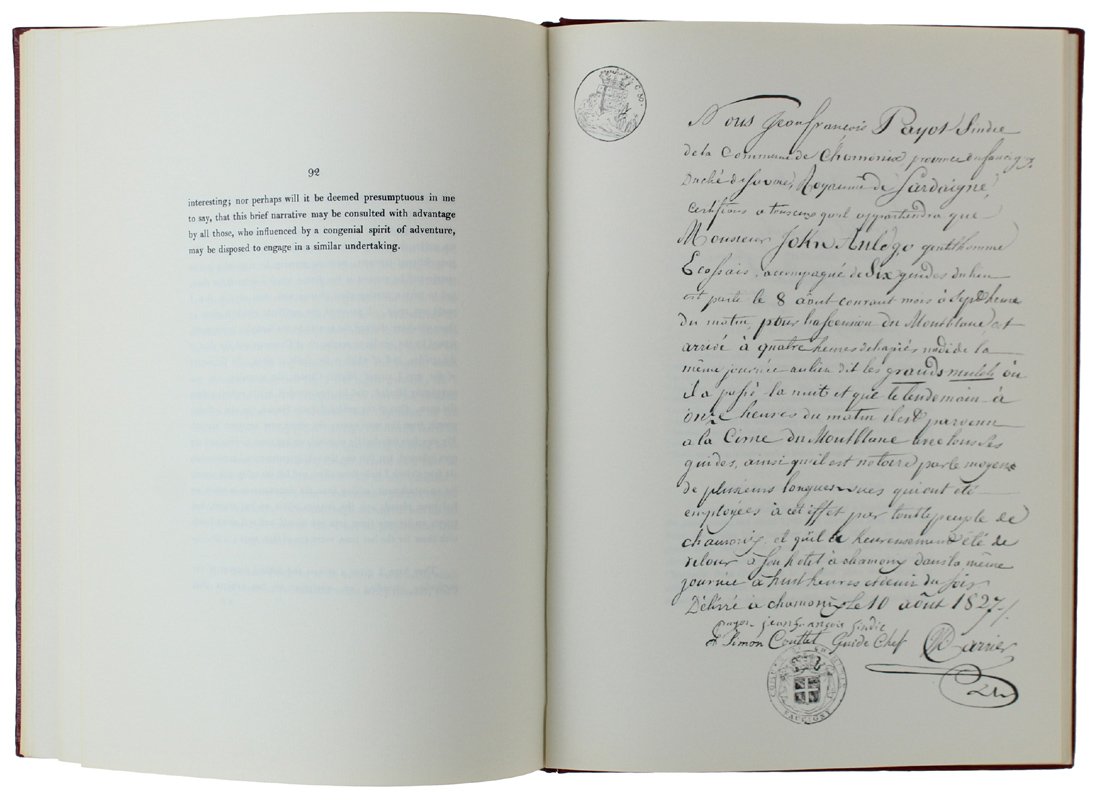 92
interesting; nor perhaps will it be deemed presumptuous in me
to say, that this brief narrative may be consulted with advantage
by all those, who influenced by a congenial spirit of adventure,
may be disposed to engage in a similar undertaking.
Nous Jean françois Payot Sindic
de la Commune de Chamonix province en faucigny
Duché de Savoie, Royaume de Sardaigne,
Certifions a tous ceux qu'il appartiendra que
Monsieur John Auldjo gentilhomme
Ecossais, accompagné de Six guides du lieu
est parti le 8 août courant mois à Sept heure
du matin, pour l'ascension du Montblanc, est
arrivé à quatre heures de l'après midi de la
même journée au lieu dit les grands mulets où
il a passé la nuit et que le lendemain à
onze heures du matin il est parvenu
a la Cime du Montblanc avec tous ses
guides, ainsi qu'il est notoire par le moyen
de plusieurs longues vues qui ont été
employées à cet effet par tout le peuple de
chamonix, et qu'il a heureusement été de
retour à son hotel à chamonix dans la même
journée à huit heures et demi du soir
Délivré à chamonix le 10 août 1827
payot jean françois Sindic
Simon Couttet Guide Chef
FAUCIGNY